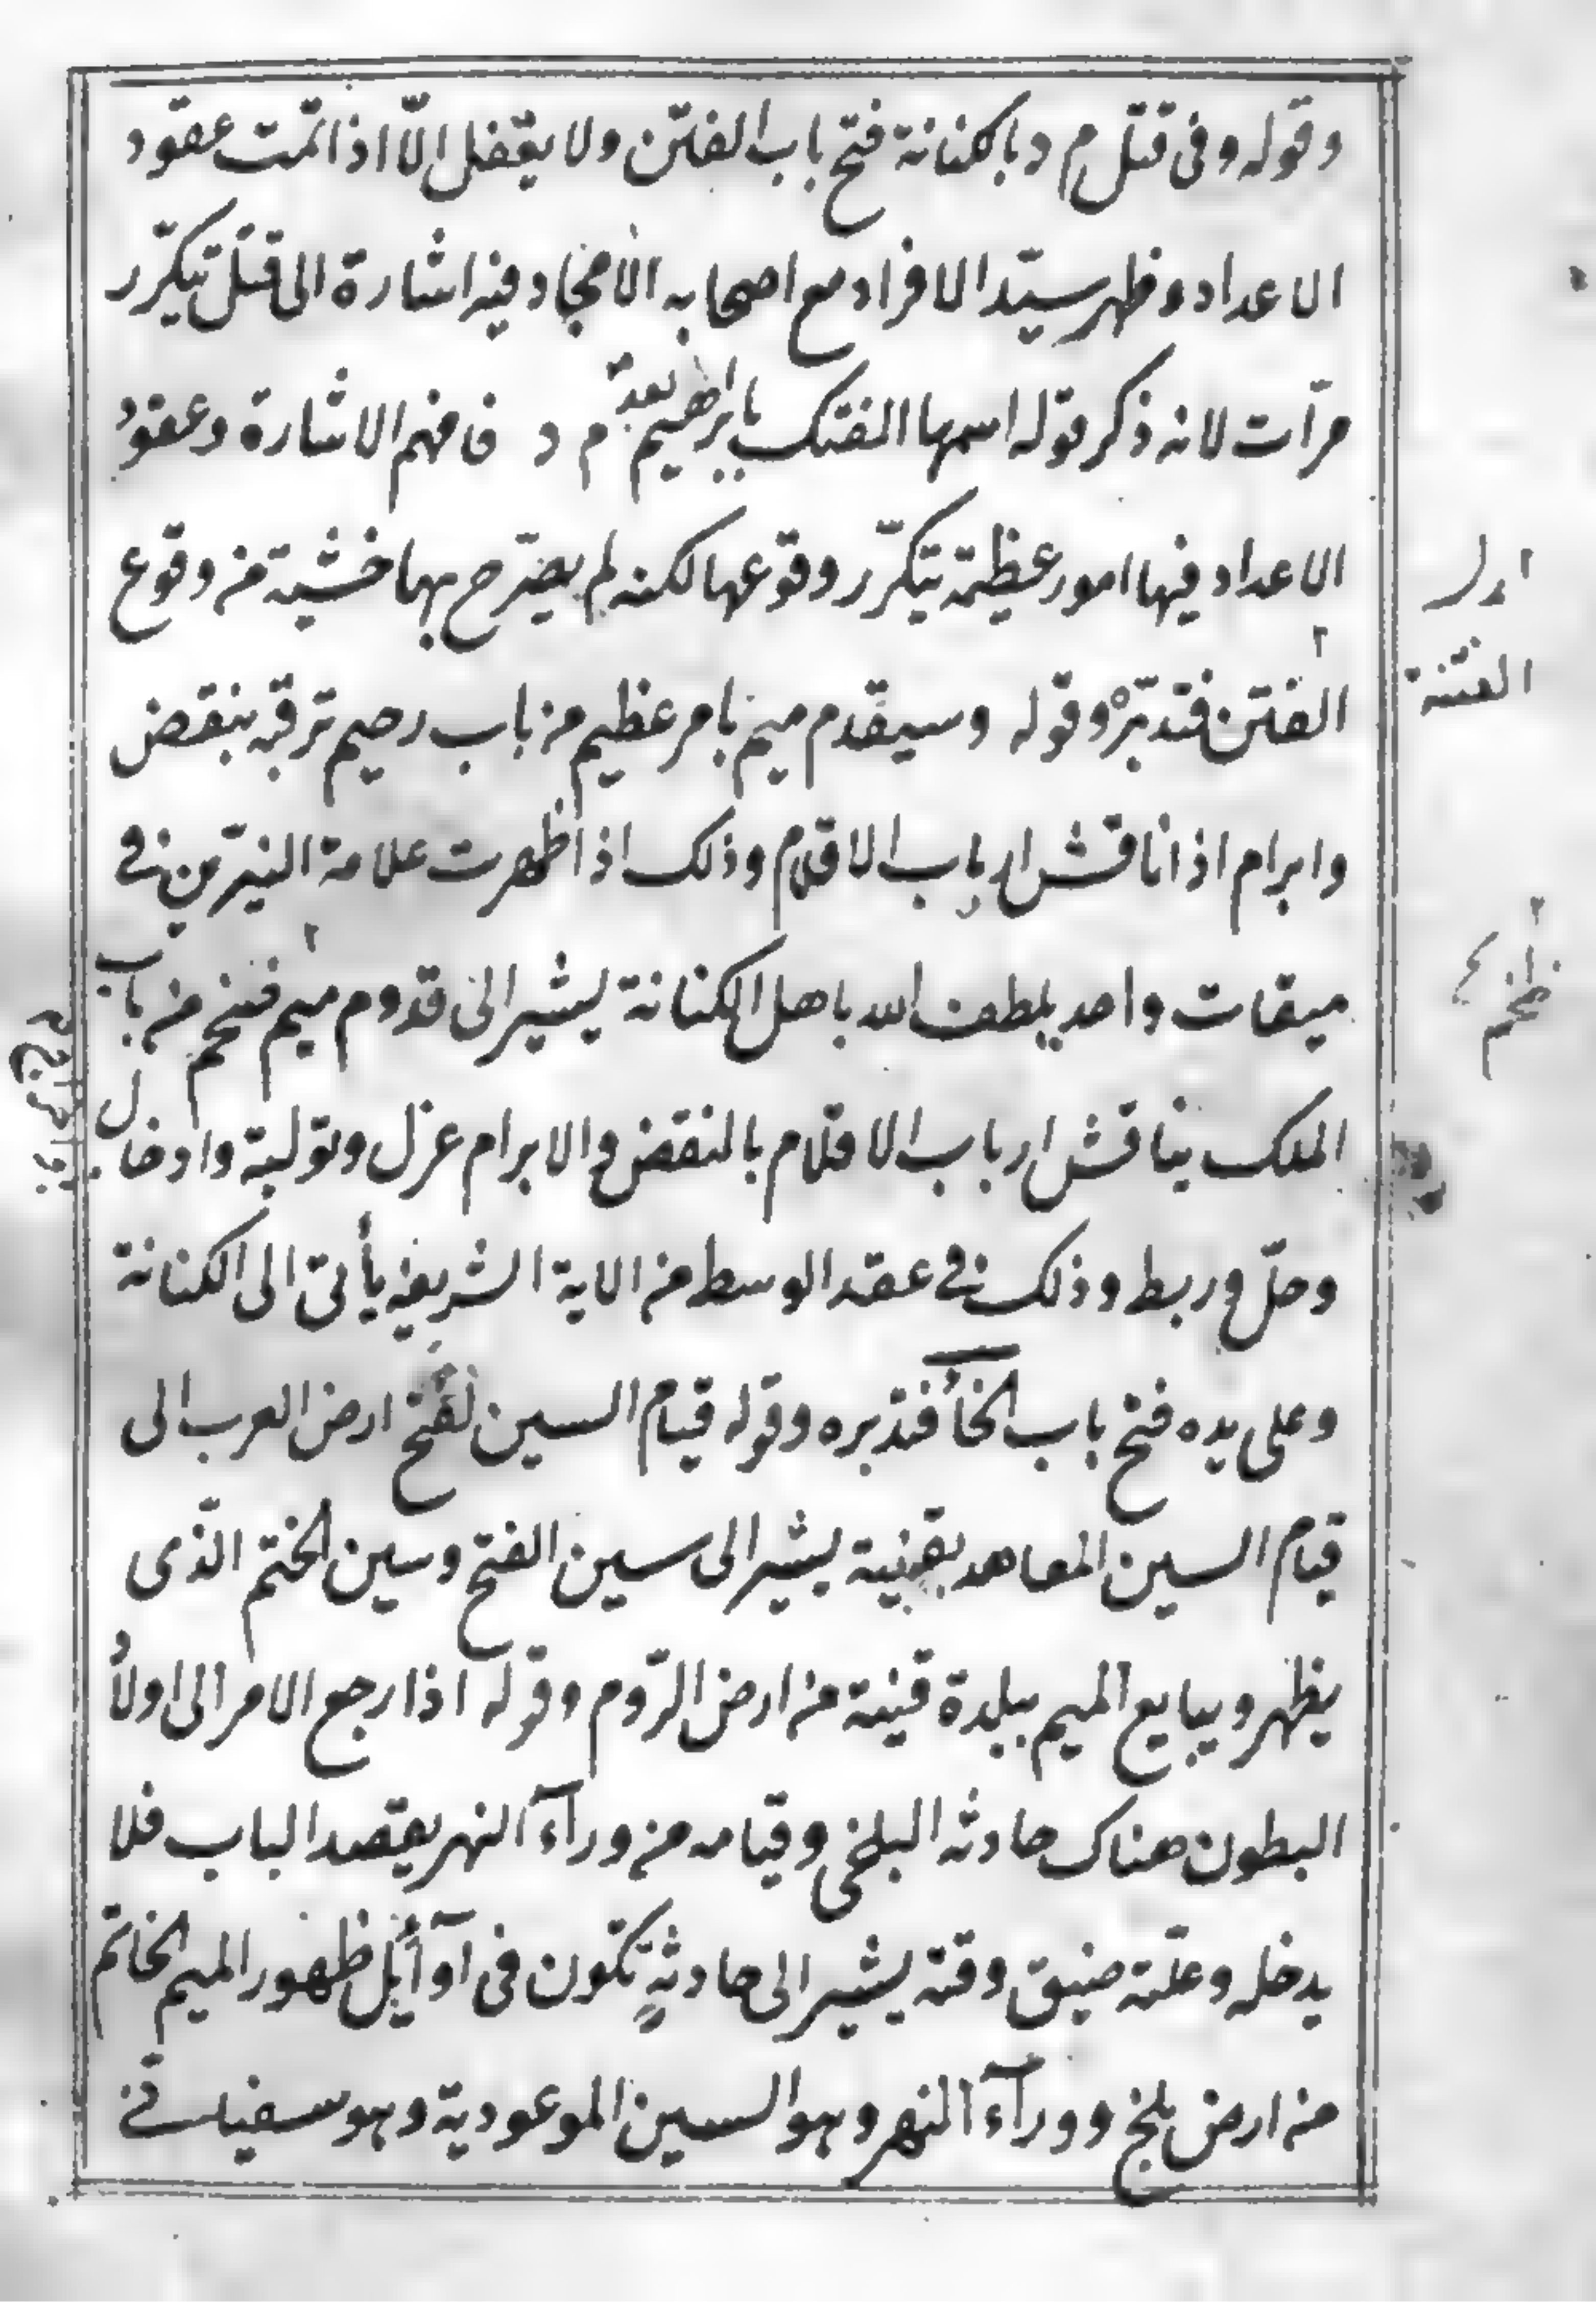 وقوله وفى قتل م د بالكنانة فتح باب الفتن ولا يقفل الّا اذا تمّت عقود
الاعداد وظهر سيّد الافراد مع اصحابه الامجاد فيه اشارة الى قتل يتكرّر
مرّات لانه ذكر قوله اسمها الفتك بابراهيم بعد م د فافهم الاشارة وعقود
الاعداد فيها امور عظيمة يتكرّر وقوعها لكنه لم يصرّح بها خشية من وقوع
الفتن فتدبّره وقوله وسيقدم ميم بامر عظيم من باب رحيم ترقبه بنقض
وابرام اذا ناقش ارباب الاقلام وذلك اذا ظهرت علامة النيّرين فى
ميقات واحد يلطف الله باهل الكنانة يشير الى قدوم ميم فخم من باب
الملك يناقش ارباب الاقلام بالنقض والابرام عزل وتولية وادخال
وحلّ وربط وذلك فى عقد الوسط من الاية الشريفة يأتى الى الكنانة
وعلى يده فتح باب الخأ فتدبره وقوله قيام السين لفتح ارض العرب الى
قيام السين المعاهد بقينية يشير الى سين الفتح وسين الختم الذّى
يظهر ويبايع الميم ببلدة قينية من ارض الرّوم وقوله اذا رجع الامر الى اولاد
البطون هناك حادثه البلخى وقيامه من ورآء النهر يقصد الباب فلا
يدخله وعلّته ضيق وقته يشير الى حادثةٍ تكون فى آوآئل ظهور الميم الخاتم
من ارض بلخ وورآء النهر وهو السين الموعودية وهو سفيانى
الفتنة
فخم